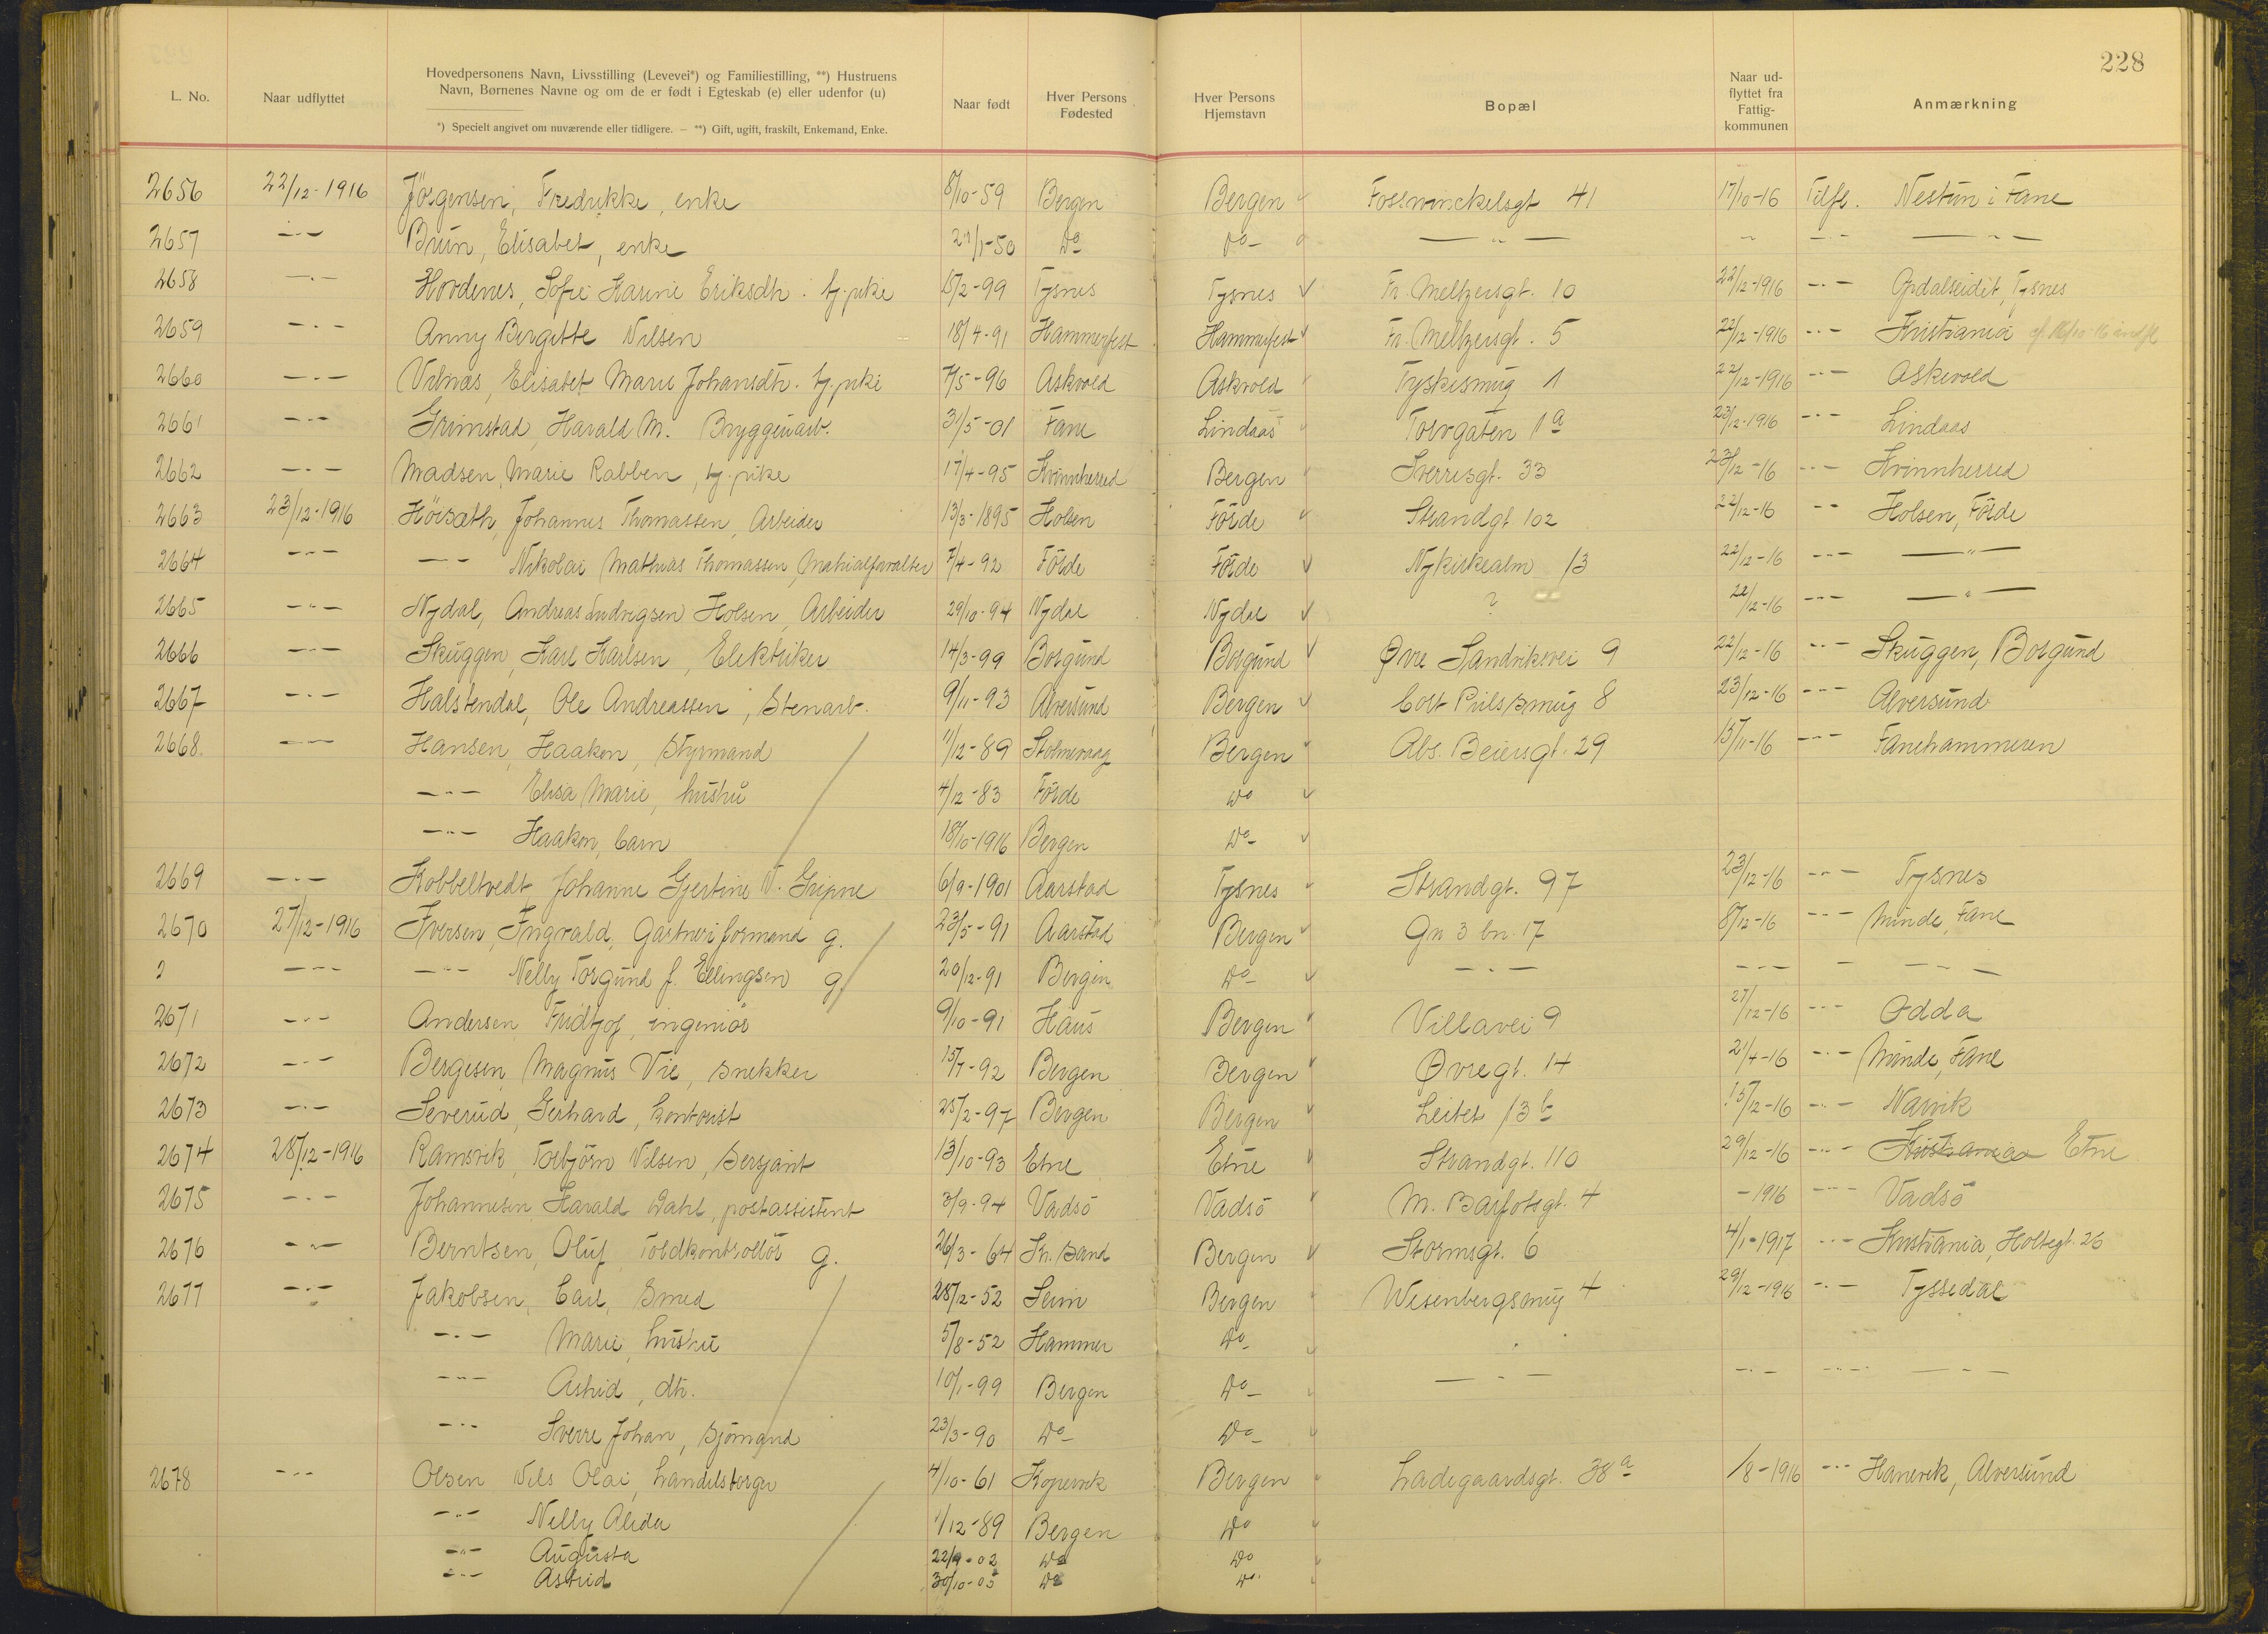 228
L. No.
Naar udflyttet
Hovedpersonens Navn, Livsstilling (Levevei*) og Familiestilling, **) Hustruens
Navn, Børnenes Navne og om de er født i Egteskab (e) eller udenfor (u)
*) Specielt angivet om nuværende eller tidligere. — **) Gift, ugift, fraskilt, Enkemand, Enke.
Naar født
Hver Persons
Fødested
Hver Persons
Hjemstavn
Bopæl
Naar ud-
flyttet fra
Fattig-
kommunen
Anmærkning
2656 22/12-1916 Jörgensen, Fredrikke, enke 8/10-59 Bergen Bergen Fosswinckelsgt 41 17/10-16 Tilfl. Nestun i Fane
2657 -"- Bruun, Elisabet, enke 21/1-50 Do Do - -"- -"- -"- -"-
2658 -"- Hovdenes, Sofie Karine Eriksdtr. tj.pike 15/2-99 Tysnes Tysnes Fr. Meltzersgt. 10 22/12-1916 -"- Opdalseidet, Tysnes
2659 -"- Anny Bergitte Nilsen 18/4-91 Hammerfest Hammerfest Fr. Meltzersgt. 5 22/12-1916 -"- Kristiania cf. 16/10-16 indfl
2660 -"- Vilnæs, Elisabet Marie Johansdtr. tj.pike 7/5-96 Askvold Askvold Tyskesmug 1 22/12-1916 -"- Askevold
2661 -"- Grimstad, Harald M. Bryggeriarb. 31/5-01 Fane Lindaas Torvgaten 1a 23/12-1916 -"- Lindaas
2662 -"- Madsen, Marie Rabben, tj.pike 17/4-95 Kvinnherred Bergen Sverresgt. 33 23/12-16 -"- Kvinnherred
2663 23/12-1916 Höisæth, Johannes Thomassen, Arbeider 13/3-1895 Holsen Förde Strandgt 102 22/12-16 -"- Holsen, Förde
2664 -"- -"- Nikolai Mathias Thomassen, 7/4-92 Förde Förde Nykirkealm 13 22/12-16 -"- -"-
2665 -"- Nydal, Andreas Ludvigsen Holsen, Arbeider 29/10-94 Nydal Nydal ? 22/12-16 -"- -"-
2666 -"- Skuggen, Karl Karlsen, Elektriker 14/3-99 Borgund Borgund Øvre Sandviksvei 9 22/12-16 -"- Skuggen, Borgund
2667 -"- Halstendal, Ole Andreassen, Stenarb. 9/11-93 Alversund Bergen Cort Piilssmug 8 23/12-16 -"- Alversund
2668. -"- Hansen, Haakon, Styrmand 11/12-89 Stolmevaag Bergen Abs. Beiersgt. 29 15/11-16 -"- Fanehammeren
-"- Elisa Marie, hustru 4/12-83 Förde Do
-"- Haakon, barn 18/10-1916 Bergen Do
2669 -"- Kobbeltvedt, Johanne Gjertine N. Gripne 6/9-1901 Aarstad Tysnes Strandgt. 97 23/12-16 -"- Tysnes
2670 27/12-1916 Iversen, Ingvald, Gartneriformand g. 23/5-91 Aarstad Bergen Gn 3 bn. 17 8/12-16 -"- Minde, Fane
2 -"- -"- Nelly Torgund f. Ellingsen g. 20/12-91 Bergen Do -"- -"- - -"-
2671 -"- Andersen Fridtjof, ingeniör 9/10-91 Haus Bergen Villavei 9 27/12-16 -"- Odda
2672 -"- Bergesen, Magnus Vie, snekker 15/7-92 Bergen Bergen Øvregt. 14 21/4-16 -"- Minde, Fane
2673 -"- Severud, Gerhard, kontorist 25/2-97 Bergen Bergen Leitet 13b 15/12-16 -"- Narvik
2674 28/12-1916 Ramsvik, Torbjörn Nilsen, Sersjant 13/10-93 Etne Etne Strandgt. 110 29/12-16 -"- Kristiania Etne
2675 -"- Johannesen, Harald Dahl, postassistent 3/9-94 Vadsö Vadsö M. Barfotsgt. 4 -1916 -"- Vadsö
2676 -"- Berntsen, Oluf, Toldkontrollör g. 26/3-64 Kr. sand Bergen Stormsgt. 6 4/1-1917 -"- Kristiania, Holtegt. 26
2677 -"- Jakobsen, Carl, Smed 28/12-52 Seim Bergen Wesenbergsmug 4 29/12-1916 -"- Tyssedal
-"- Marie, hustru 5/8-52 Hammer Do
-"- Astrid, dtr. 10/1-99 Bergen Do -"- -"- -"- -"-
-"- Sverre Johan, Sjömand 23/3-90 Do Do
2678 -"- Olsen Nils Olai, handelsborger 4/10-61 Kopervik Bergen Ladegaardsgt. 38a 1/8-1916 -"- Hanevik, Alversund
-"- Nelly Alida 1/12-89 Bergen Do
-"- Augusta 22/9-02 Do Do
-"- Astrid 30/10-05 Do Do